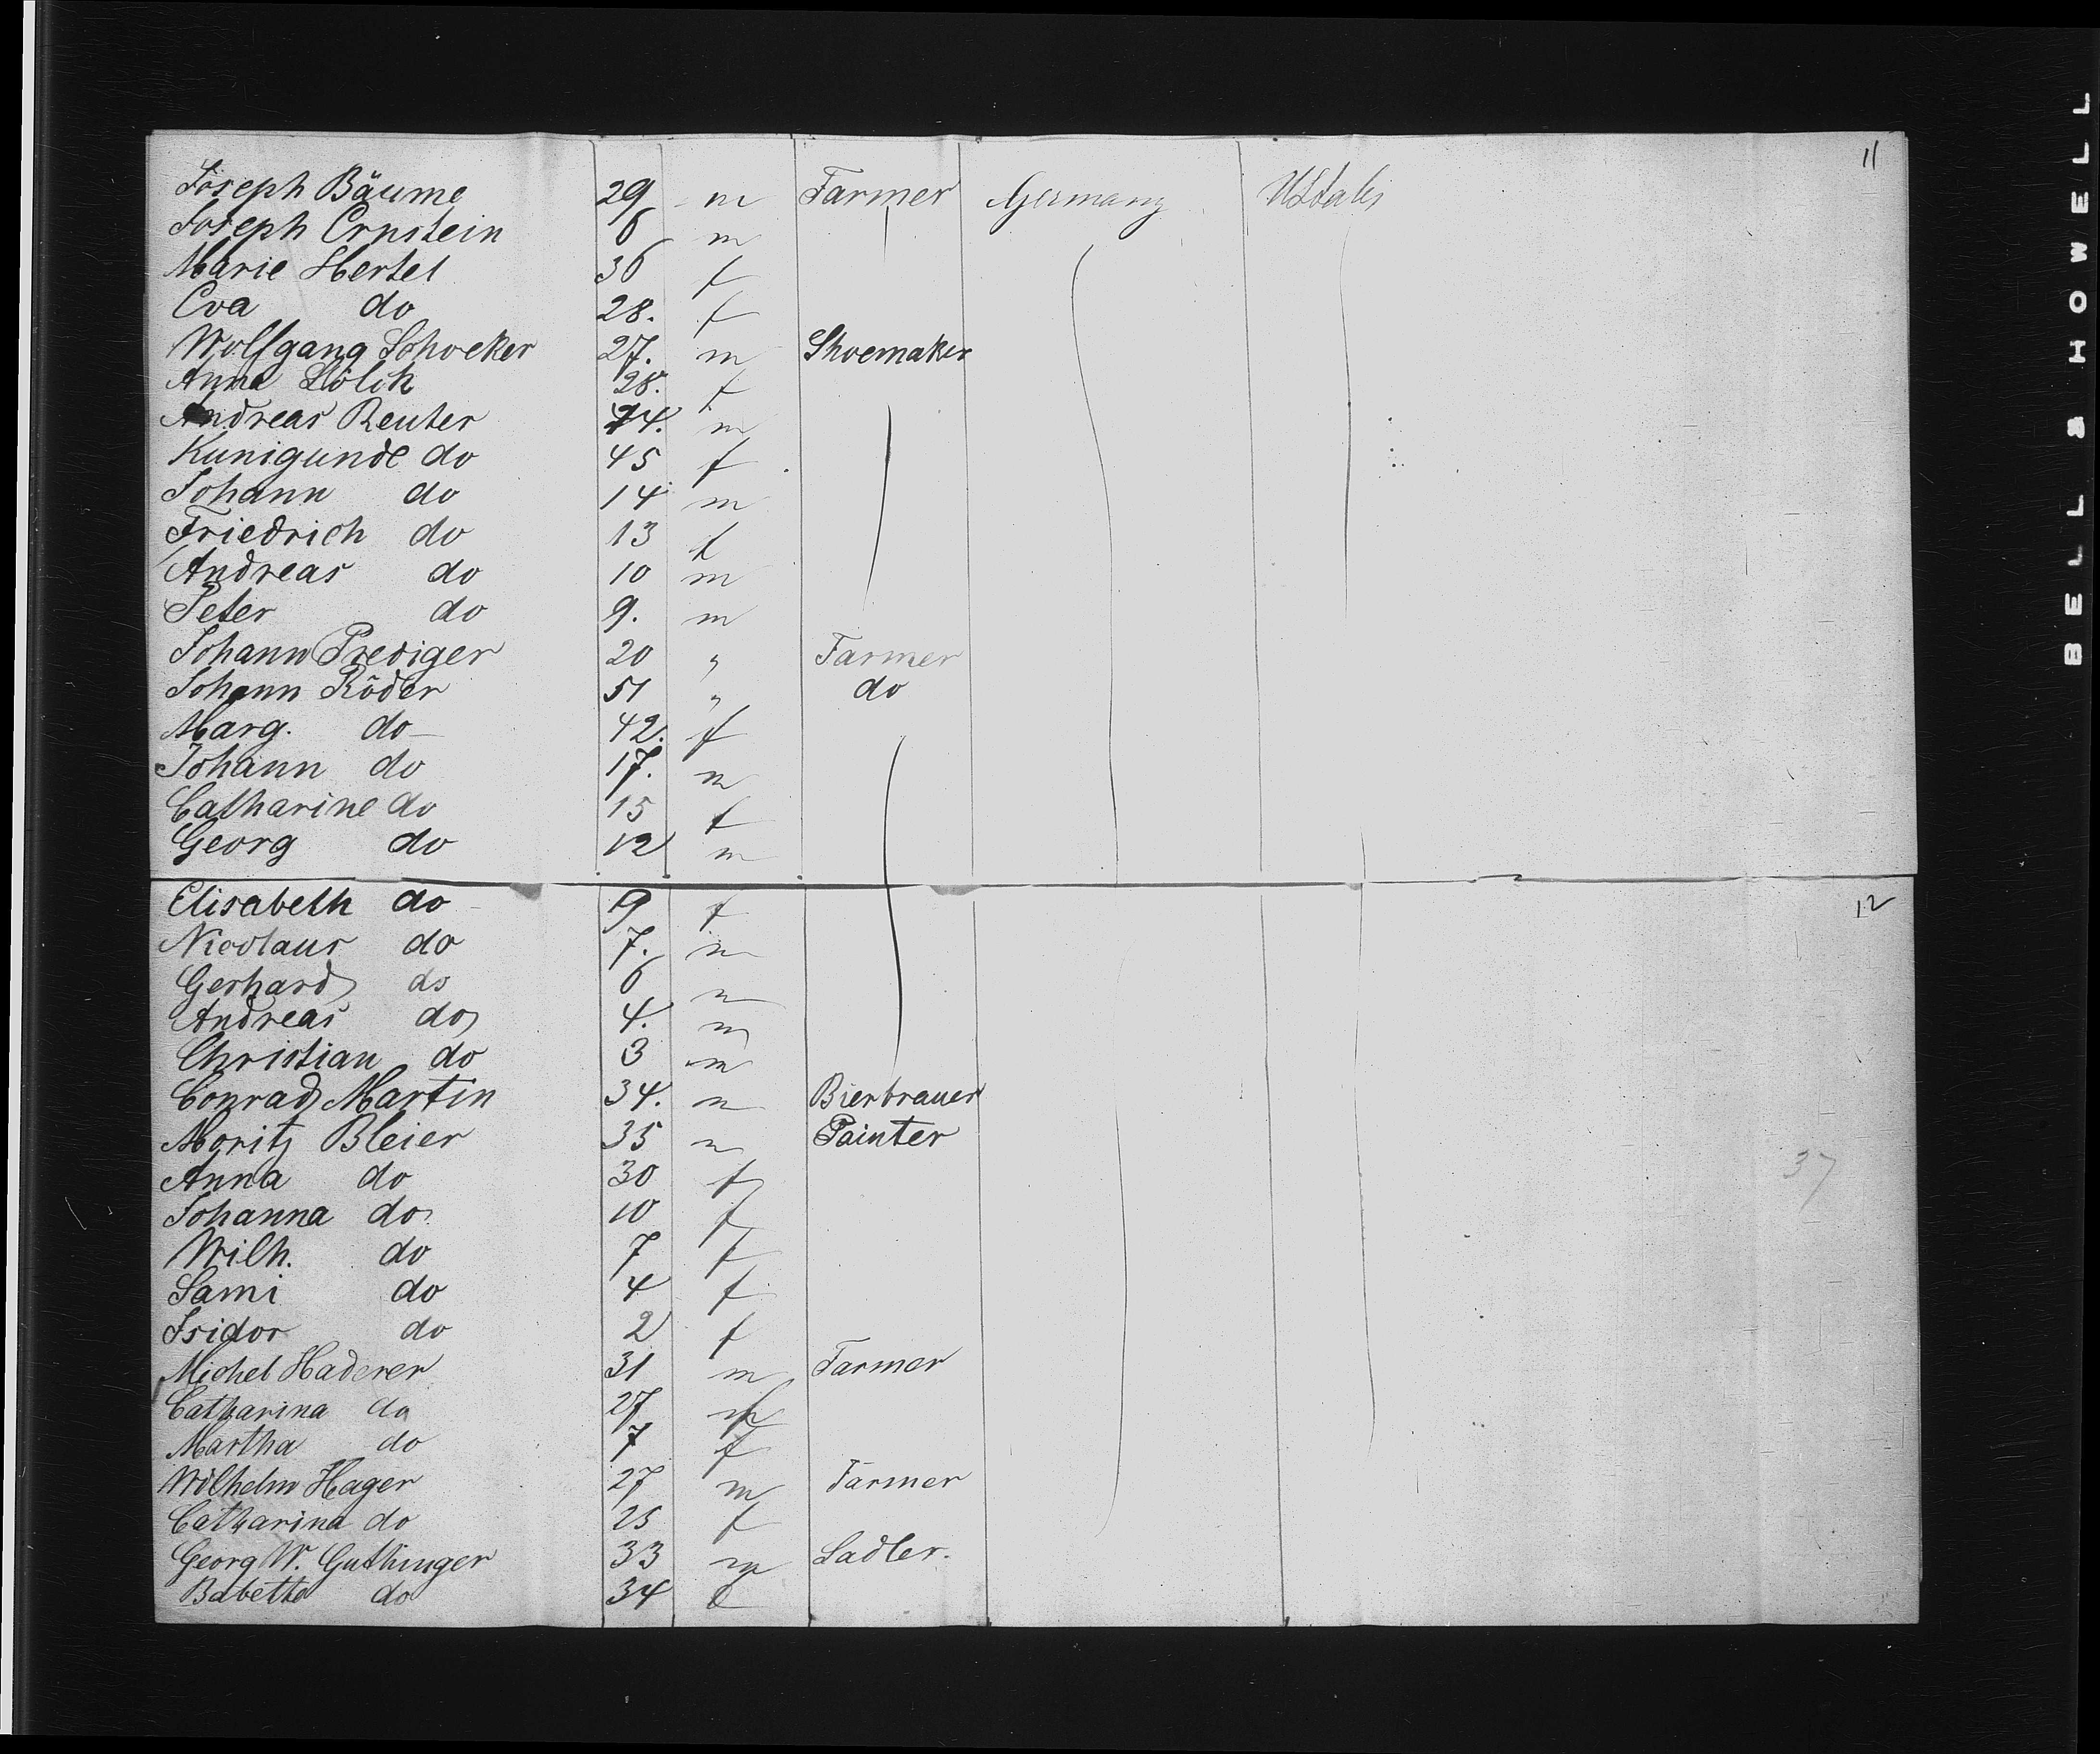 11
Joseph Bäume 29 m Farmer Germany UStates
Joseph Ernstein 6 m
Marie Hertel 36 f
Eva do 28. f
Wolfgang Schoeker 27. m Shoemaker
Anna Lölch 28. f
Andreas Reuter 44. m
Kunigunde do 45 f
Johann do 14 m
Friedrich do 13 f
Andreas do 10 m
Peter do 9. m
Johann Prediger 20 " Farmer
Johann Röder 51 " do
Marg. do 42. f
Johann do 17. m
Catharine do 15 f
Georg do 12 m
Elisabeth do 9 f
12
Nicolaus do 7. m
Gerhard do 6 m
Andreas do 4. m
Christian do 3 m
Conrad Martin 34. m Bierbrauer
Moritz Bleier 35 m Painter
Anna do 30 f
37
Johanna do 10 f
Wilh. do 7 f
Sami do 4 f
Isidor do 2 f
Michel Haderer 31 m Farmer
Catharina do 27 f
Martha do 7 f
Wilhelm Hager 27 m Farmer
Catharina do 25 f
Georg W. Guthinger 33 m Sadler.
Babette do 34 f
BELL & HOWELL